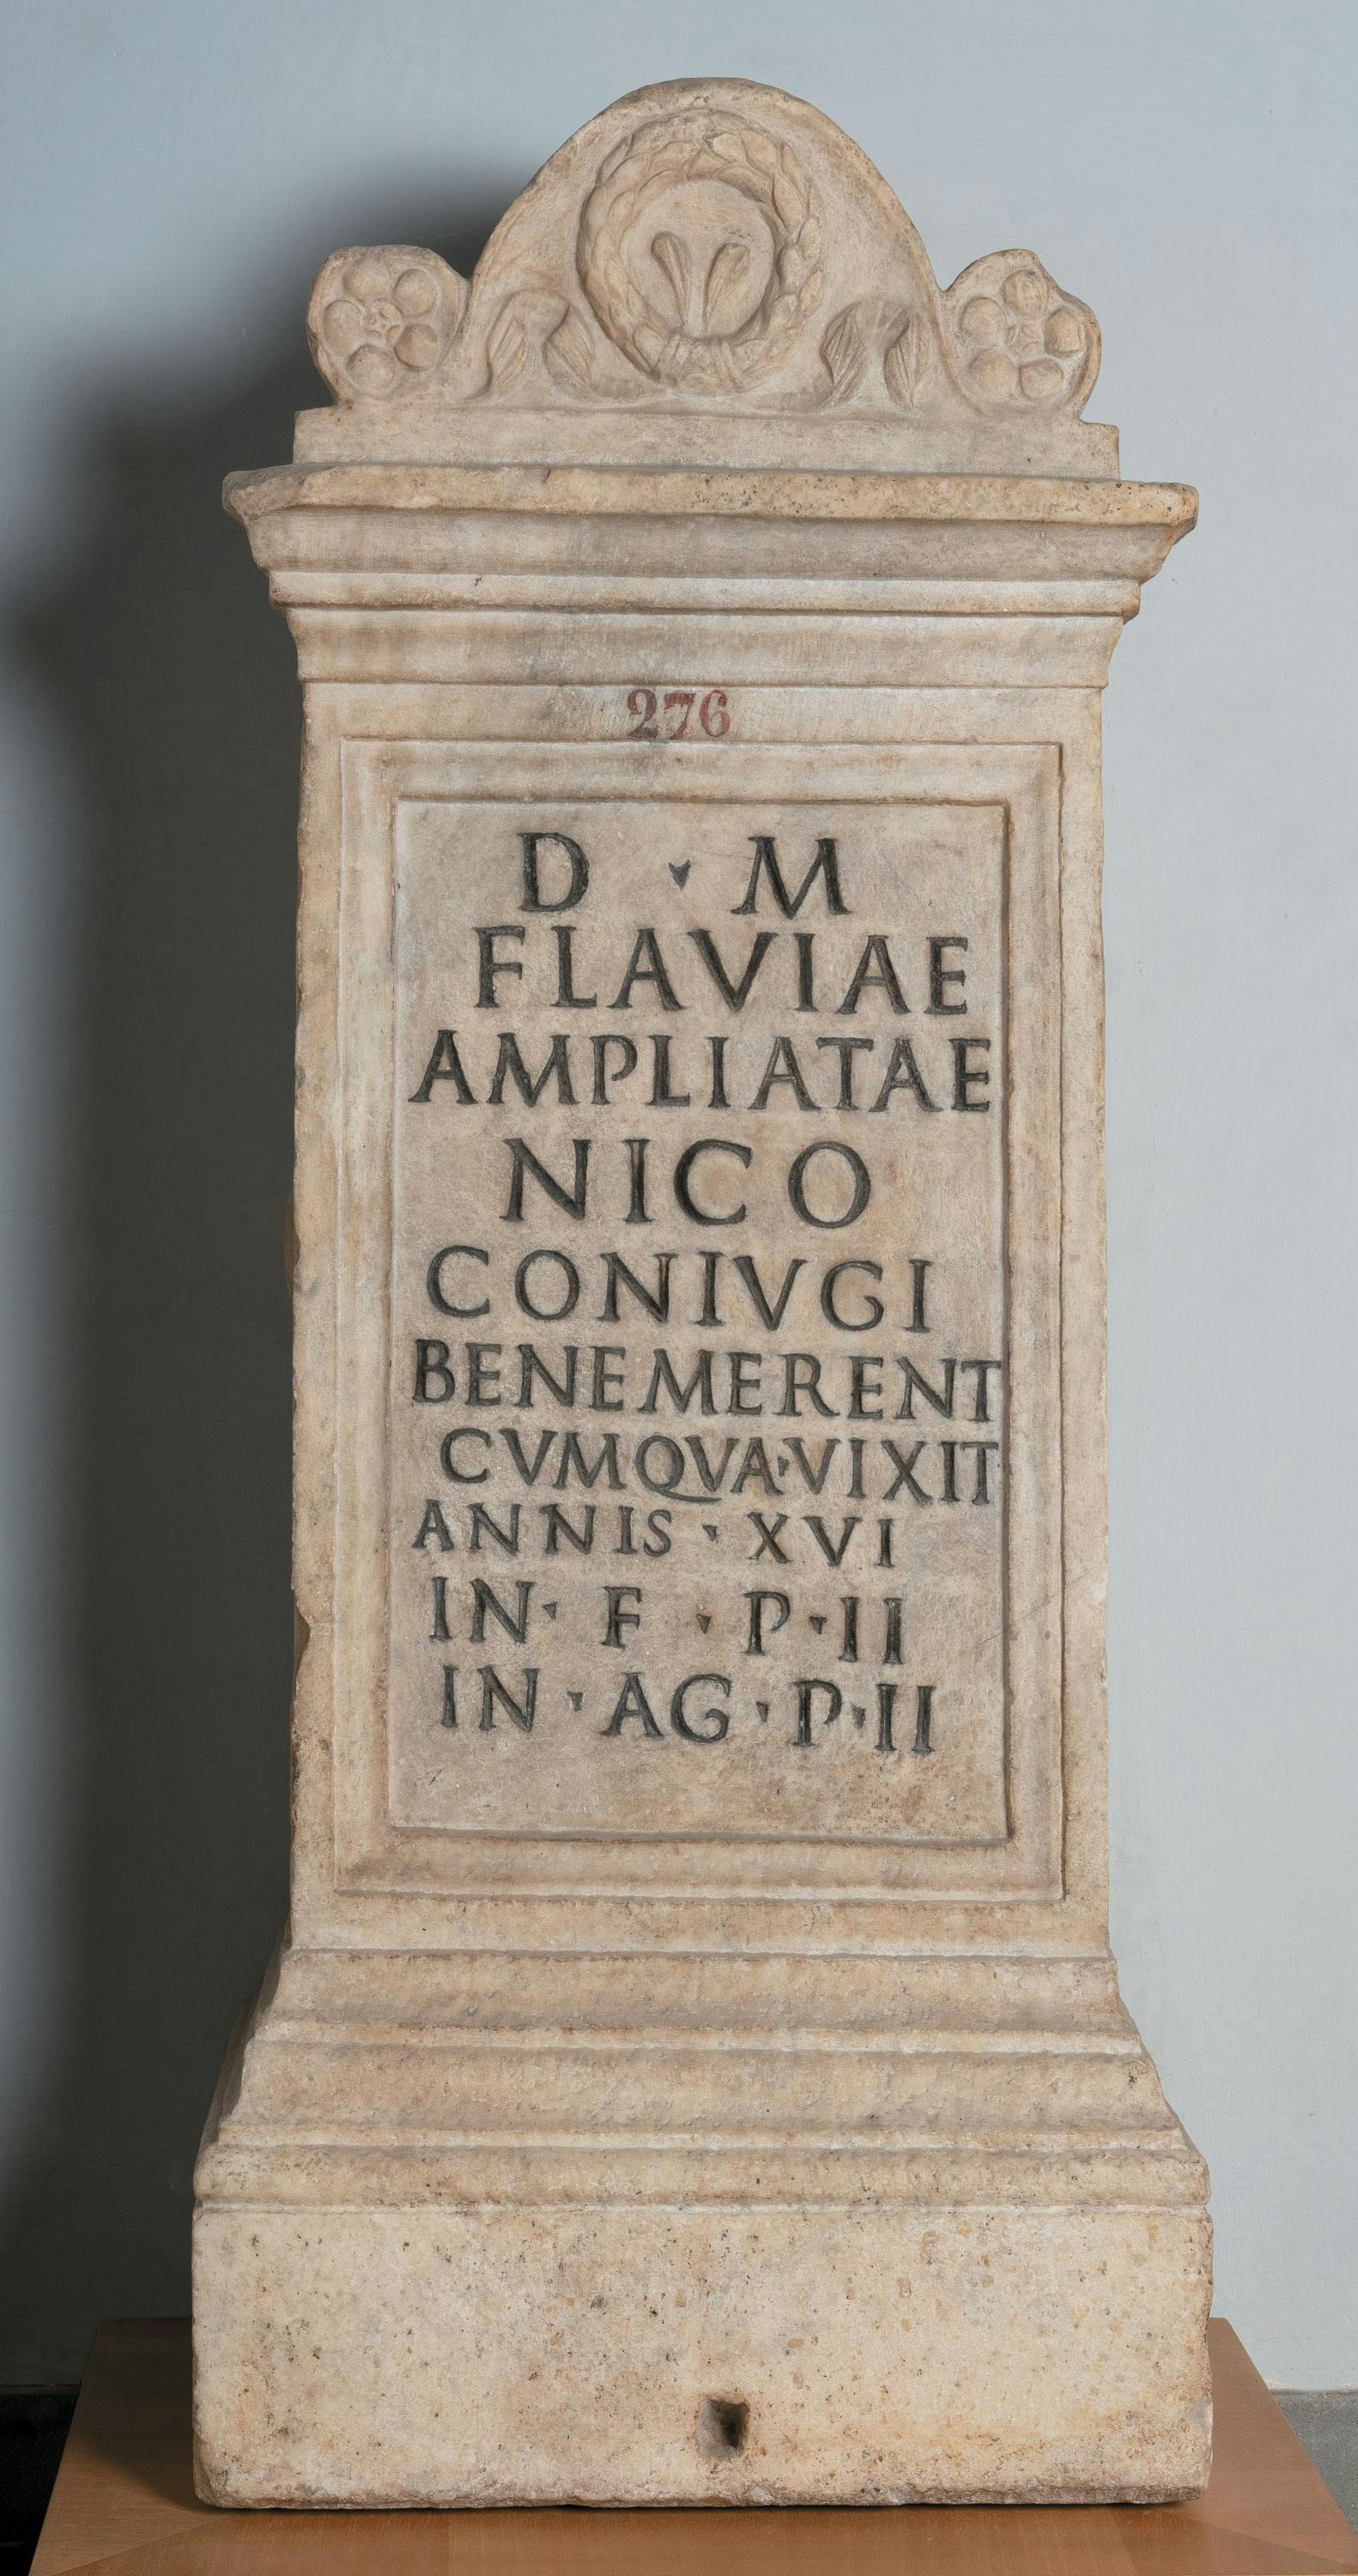 276
D M
FLAVIAE
AMPLIATAE
NICO
CONIVGI
BENEMERENT
CVMQVA·VIXIT
ANNIS · XVI
IN · F · P · II
IN · AG · P · II